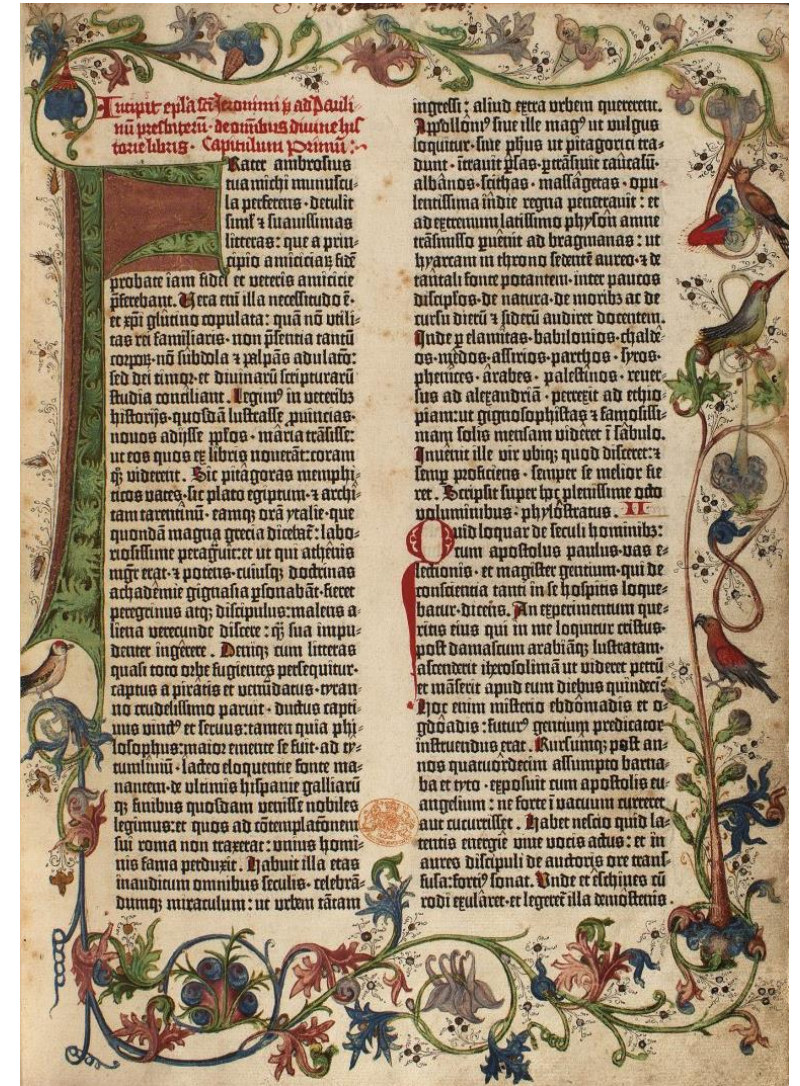 Incipit epl̄a sc̄i Jeronimi p̄ ad Pauli-
nū presbiterū · de om̄ibus diuine his
torie libris · Capitulum Primū :·
Frater ambrosius
tua michi munuscu-
la perferens · detulit
siml' ⁊ suauissimas
litteras : que a prin-
cipio amiciciaꝝ fidē
probate iam fidei et veteris amicicie
p̄ferebant. Vera enī illa necessitudo ē ·
et xp̄i glutino copulata : quā nō vtili-
tas rei familiaris · non p̄sentia tantū
corpoꝝ · nō subdola ⁊ palpās adulatō :
sed dei timor · et diuinarū scripturarū
studia conciliant . Legim⁹ in veteribꝫ
historijs · quosdā lustrasse ꝓuincias ·
nouos adijsse pp̄los · maria trāsisse :
ut eos quos ex libris nouerāt : coram
qꝫ viderent . Sic pitagoras memphi-
ticos vates · sic plato egiptum · ⁊ archi-
tam tarentinū · eamqꝫ orā ytalie · que
quondā magna grecia dicebat̄ : labo-
riosissime peragᵢuit : et ut qui athenis
mgr̄ erat · ⁊ potens · cuiusqꝫ doctrinas
achademie gignasia ꝑsonabāt · fieret
peregrinus atqꝫ discipulus : malens a-
liena verecunde discere : qꝫ sua impu-
denter ingerere . Deniqꝫ cum litteras
quasi toto orbe fugientes persequitur ·
captus a piratis et venūdatus · tyran-
no crudelissimo paruit · ductus capti-
uus vinct⁹ et seruus : tamen quia phi-
losophus : maior emente se fuit · ad ty-
tumliuiū · lacteo eloquentie fonte ma-
nantem · de vltimis hispanie galliarū
qꝫ finibus quosdam venisse nobiles
legimus : et quos ad cōtemplatōnem
sui roma non traxerat : vnius homi-
nis fama perduxit . Habuit illa etas
inauditum omnibus seculis · celebrā-
dumqꝫ miraculum : ut vrbem tātam
ingressi : aliud extra vrbem quererent.
Appolloni⁹ siue ille mag⁹ ut vulgus
loquitur · siue ph̄us ut pitagorici tra-
dunt · ītrauit p̄sas · ꝑtrāsiuit caucasū ·
albanos · scithas · massagetas · opu-
lentissima indie regna penetrauit : et
ad extremum latissimo physon amne
trāsmisso ꝑuenit ad bragmanas : ut
hyarcam in throno sedentē aureo · ⁊ de
tantali fonte potantem · inter paucos
discipl̄os · de natura · de moribꝫ ac de
cursu dierū ⁊ siderū audiret docentem.
Inde ꝑ elamitas · babilonios · chalde-
os · medos · assirios · parthos · syros ·
phenices · arabes · palestinos · reuer-
sus ad alexandriā · perrexit ad ethio-
piam : ut gignosophistas ⁊ famosissi-
mam solis mensam videret ī sabulo.
Inuenit ille vir vbiqꝫ quod disceret : ⁊
semp̄ proficiens · semper se melior fie
ret . Scripsit super hoc plenissime octo
voluminibus · phylostratus . II
Quid loquar de seculi hominibꝫ :
cum apostolus paulus · vas e-
lectionis · et magister gentium · qui de
conscientia tanti in se hospitis loque-
batur · dicens . An experimentum que-
ritis eius qui in me loquitur cristus ·
post damascum arabiāqꝫ lustratam ·
ascenderit iherosolimā ut videret petrū
et māserit apud eum diebus quindecī ·
Hoc enim misterio ebdomadis et o-
gdoadis : futur⁹ gentium predicator
instruendus erat . Rursumqꝫ post an-
nos quatuordecim assumpto barna-
ba et tyto · exposuit cum apostolis eu-
angelium : ne forte ī vacuum curreret
aut cucurrisset . Habet nescio quid la-
tentis energie viue vocis actus : et in
aures discipuli de auctoris ore trans-
fusa : forti⁹ sonat . Vnde et eschines cū
rodi exularet · et legeret̄ illa demostenis .